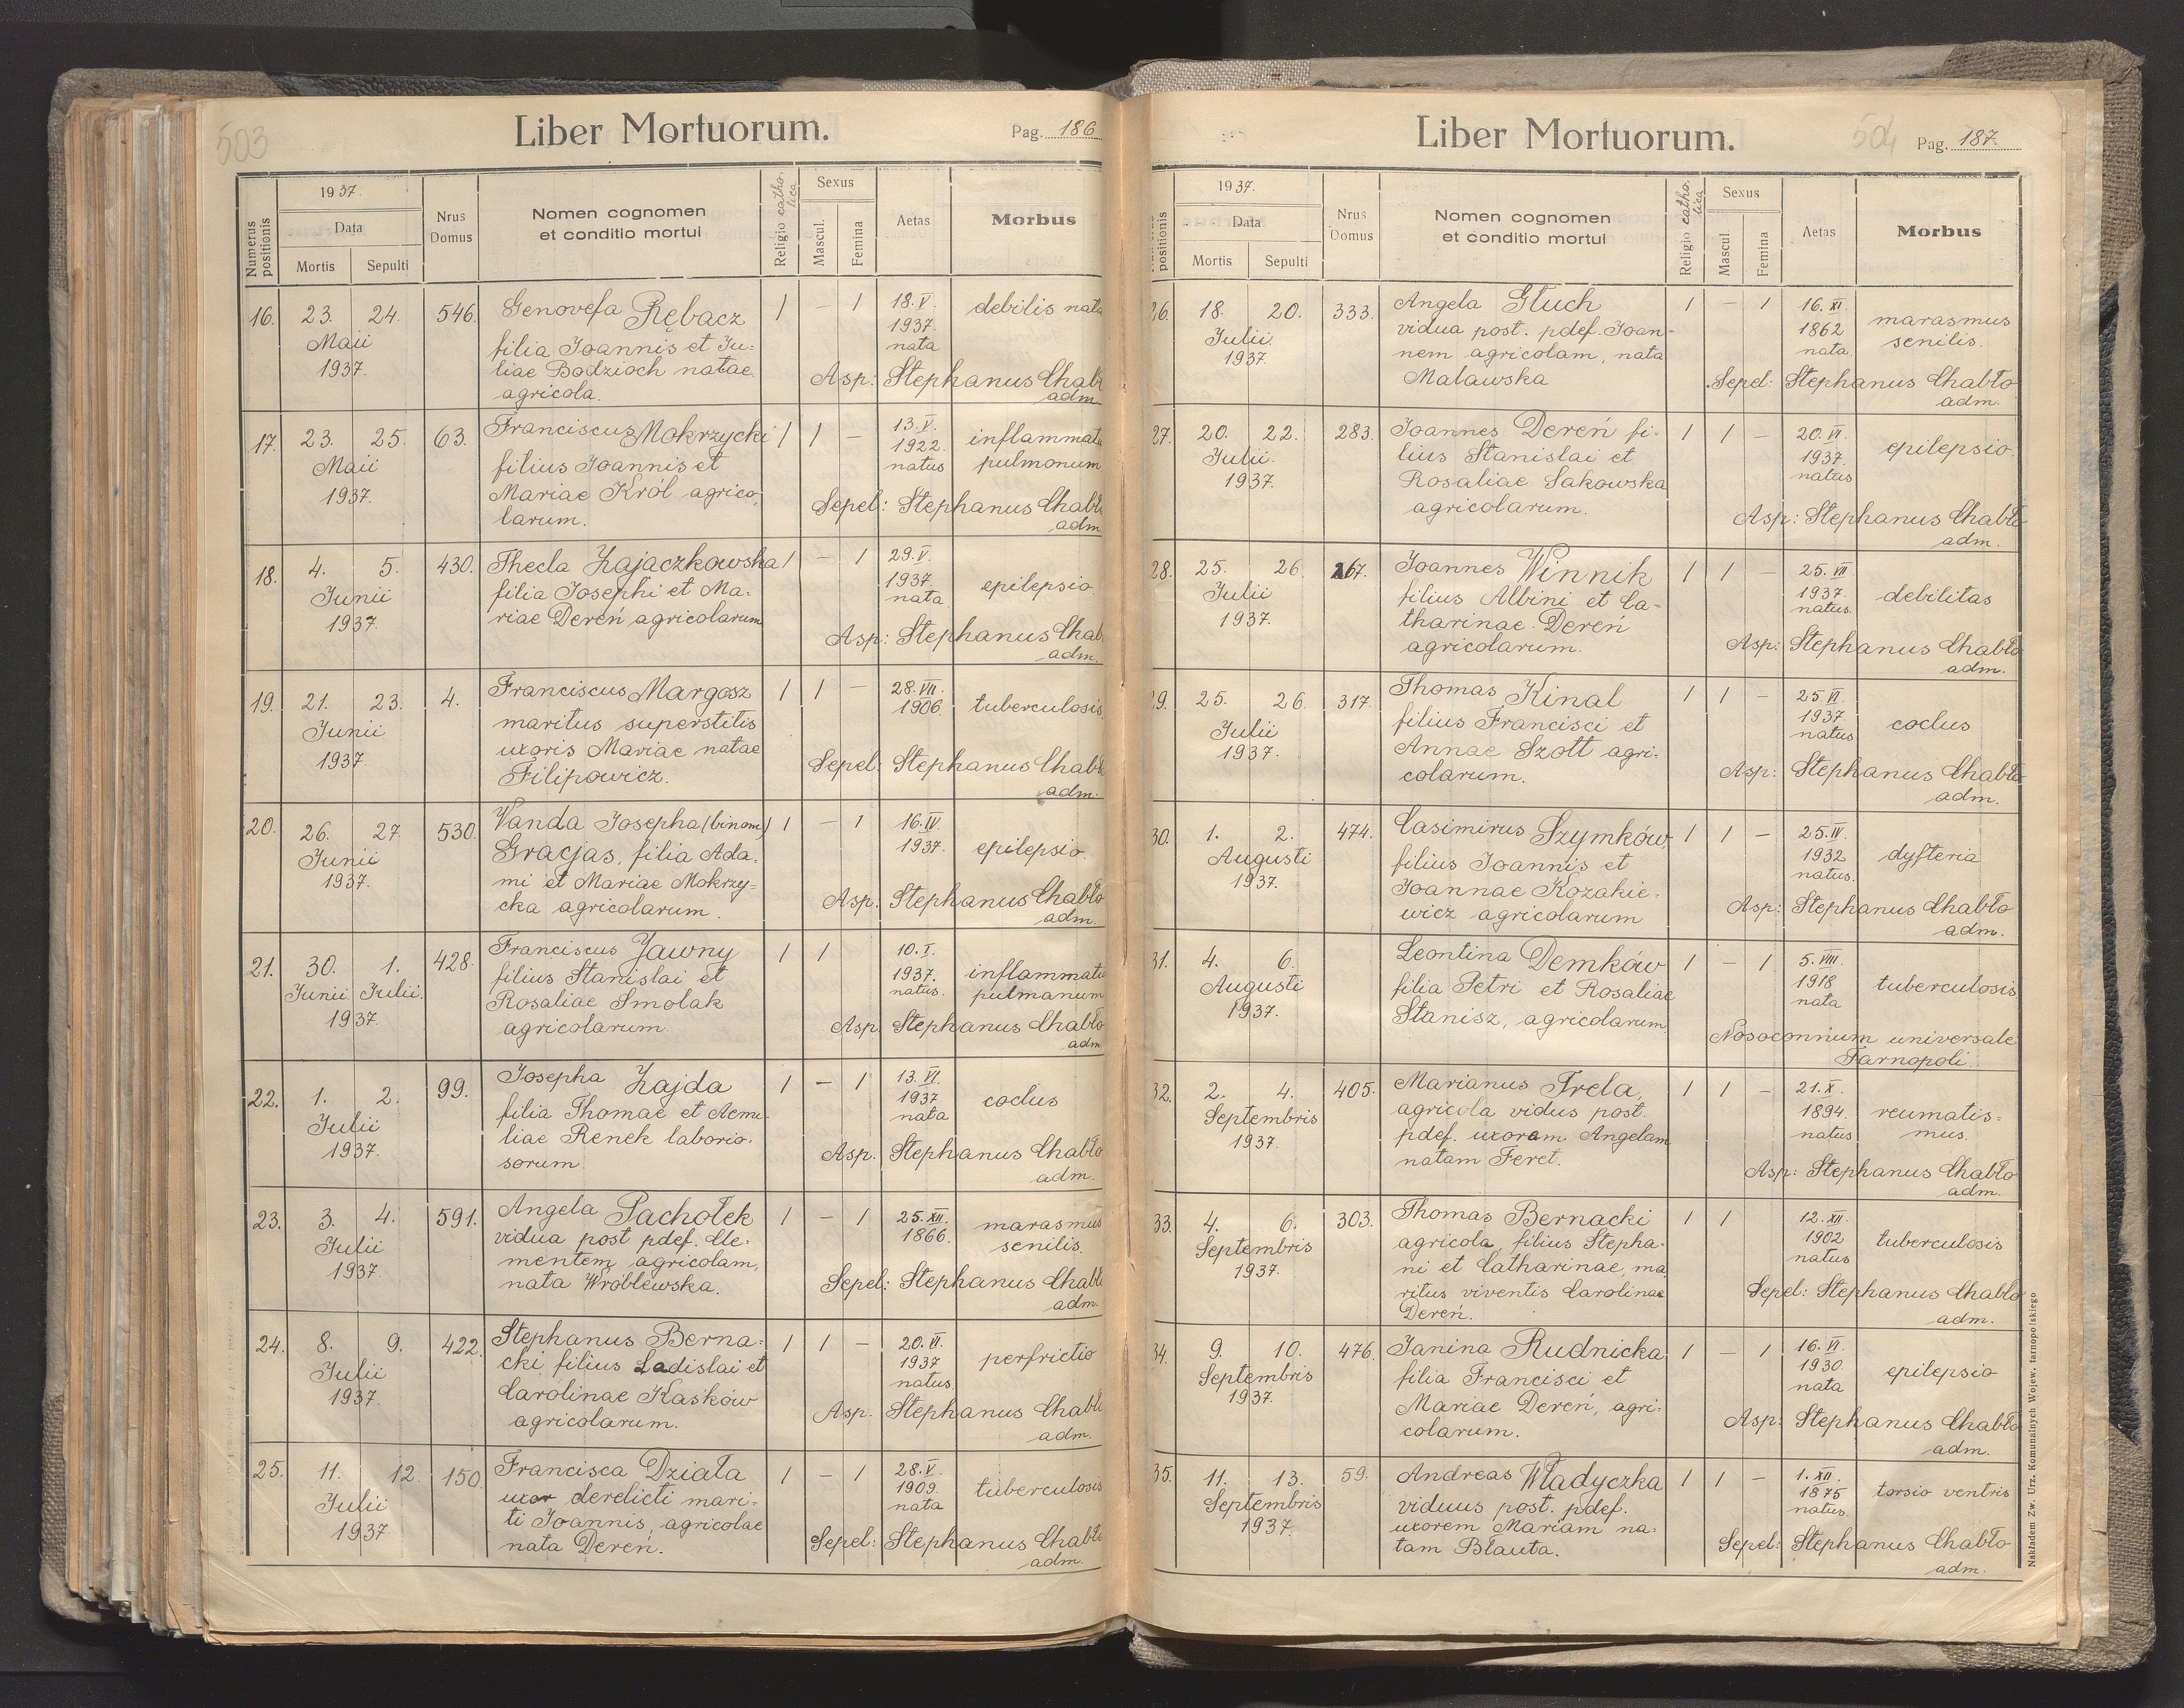 503
Liber Mortuorum.
Pag. 186
Numerus positionis
1937.
Data
Mortis
Sepulti
Nrus Domus
Nomen cognomen
et conditio mortui
Religio catho-
lica
Sexus
Mascul.
Femina
Aetas
Morbus
16. 23. 24. 546. Genovefa Rębacz 1 – 1 18.V. debilis nata
Maii filia Joannis et Ju- 1937.
1937. liae Bodzioch natae nata
agricola. Asp: Stephanus Chabł
adm.
17. 23. 25. 63. Franciscus Mokrzycki 1 1 – 13.V. inflammatio
Maii filius Joannis et 1922. pulmonum
1937. Mariae Król agrico- natus
larum. Sepel: Stephanus Chabł
adm
18. 4. 5. 430. Thecla Zajaczkowska 1 – 1 29.V. epilepsio.
Junii filia Josephi et Ma- 1937.
1937. riae Dereń agricolarum nata
Asp: Stephanus Chab
adm.
19. 21. 23. 4. Franciscus Margosz 1 1 – 28.VII. tuberculosis
Junii maritus superstitis 1906.
1937. uxoris Mariae natae
Filipowicz. Sepel: Stephanus Chabł
adm.
20. 26. 27. 530. Vanda Josepha (binom) 1 – 1 16.IV. epilepsio.
Junii Gracjas, filia Ada- 1937.
1937. mi et Mariae Mokrzy-
cka agricolarum. Asp: Stephanus Chabło
adm.
21. 30. 1. 428. Franciscus Jawny 1 1 10.I. inflammatio
Junii Julii. filius Stanislai et 1937. pulmanum
1937. Rosaliae Smolak natus.
agricolarum. Asp. Stephanus Chabło
adm
22. 1. 2. 99. Josepha Zajda 1 – 1 13.VI. coclus
Julii filia Thomae et Aemi- 1937
1937. liae Renek laborio- nata
sorum. Asp. Stephanus Chabło
adm.
23. 3. 4. 591. Angela Pachołek 1 – 1 25.XII. marasmus
Julii vidua post pdef. Cle- 1866. senilis.
1937. mentem agricolam,
nata Wróblewska. Sepel: Stephanus Chabł
adm.
24. 8. 9. 422. Stephanus Berna- 1 1 – 20.VI. perfrictio
Julii cki filius Ladislai et 1937
1937. Carolinae Kasków natus.
agricolarum. Asp. Stephanus Chabł
adm.
25. 11. 12. 150. Francisca Działa 1 – 1 28.V. tuberculosis
Julii uxor derelicti mari- 1909.
1937 ti Joannis, agricolae nata
nata Dereń. Sepel: Stephanus Chabł
adm.
504
Liber Mortuorum.
Pag. 187
positionis
1937.
Data
Mortis
Sepulti
Nrus Domus
Nomen cognomen
et conditio mortui
Religio catho-
lica
Sexus
Mascul
Femina
Aetas
Morbus
26. 18. 20. 333. Angela Głuch 1 – 1 16.XI. marasmus
Julii. vidua post. pdef. Joan- 1862 senilis.
1937. nem agricolam, nata nata.
Malawska Sepel: Stephanus Chabło
adm.
27. 20. 22. 283. Joannes Dereń fi- 1 1 – 20.VI. epilepsio.
Julii. lius Stanislai et 1937.
1937. Rosaliae Sakowska natus
agricolarum. Asp: Stephanus Chabło
adm.
28. 25. 26. 167. Joannes Winnik 1 1 – 25.VII. debilitas
Julii filius Albini et Ca- 1937.
1937. tharinae Dereń natus.
agricolarum. Asp: Stephanus Chabło
adm.
29. 25. 26. 317. Thomas Kinal 1 1 – 25.VI. coclus
Julii filius Francisci et 1937.
1937. Annae Szott agri- natus
colarum. Asp: Stephanus Chabło
adm.
30. 1. 2. 474. Casimirus Szymków, 1 1 – 25.IV. dyfteria
Augusti filius Joannis et 1932
1937. Joannae Kozakie- natus.
wicz agricolarum Asp: Stephanus Chabło
adm.
31. 4. 6. Leontina Demków 1 – 1 5.VIII. tuberculosis
Augusti filia Petri et Rosaliae 1918
1937. Stanisz, agricolarum nata
Nosoconnium universale
Tarnopoli.
32. 2. 4. 405. Marianus Trela, 1 1 – 21.X. reumatis-
Septembris agricola vidus post. 1894. mus.
1937. pdef. uxorem Angelam natus
natam Feret. Asp: Stephanus Chabło
adm.
33. 4. 6. 303. Thomas Bernacki 1 1 12.XII. tuberculosis
Septembris agricola, filius Stepha- 1902
1937. ni et Catharinae, ma- natus
ritus viventis Carolinae Sepel: Stephanus Chabło
Dereń. adm.
34. 9. 10. 476. Janina Rudnicka 1 – 1 16.VI. epilepsio
Septembris filia Francisci et 1930.
1937. Mariae Dereń, agri- nata
colarum. Asp: Stephanus Chabło
adm.
35. 11. 13. 59. Andreas Władyczka 1 1 – 1.XII. torsio ventris
Septembris viduus post. pdef. 1875
1937. uxorem Mariam na- natus.
tam Blauta. Sepel: Stephanus Chabło
adm.
Nakładem Zw. Urz. Komunalnych Wojew. tarnopolskiego